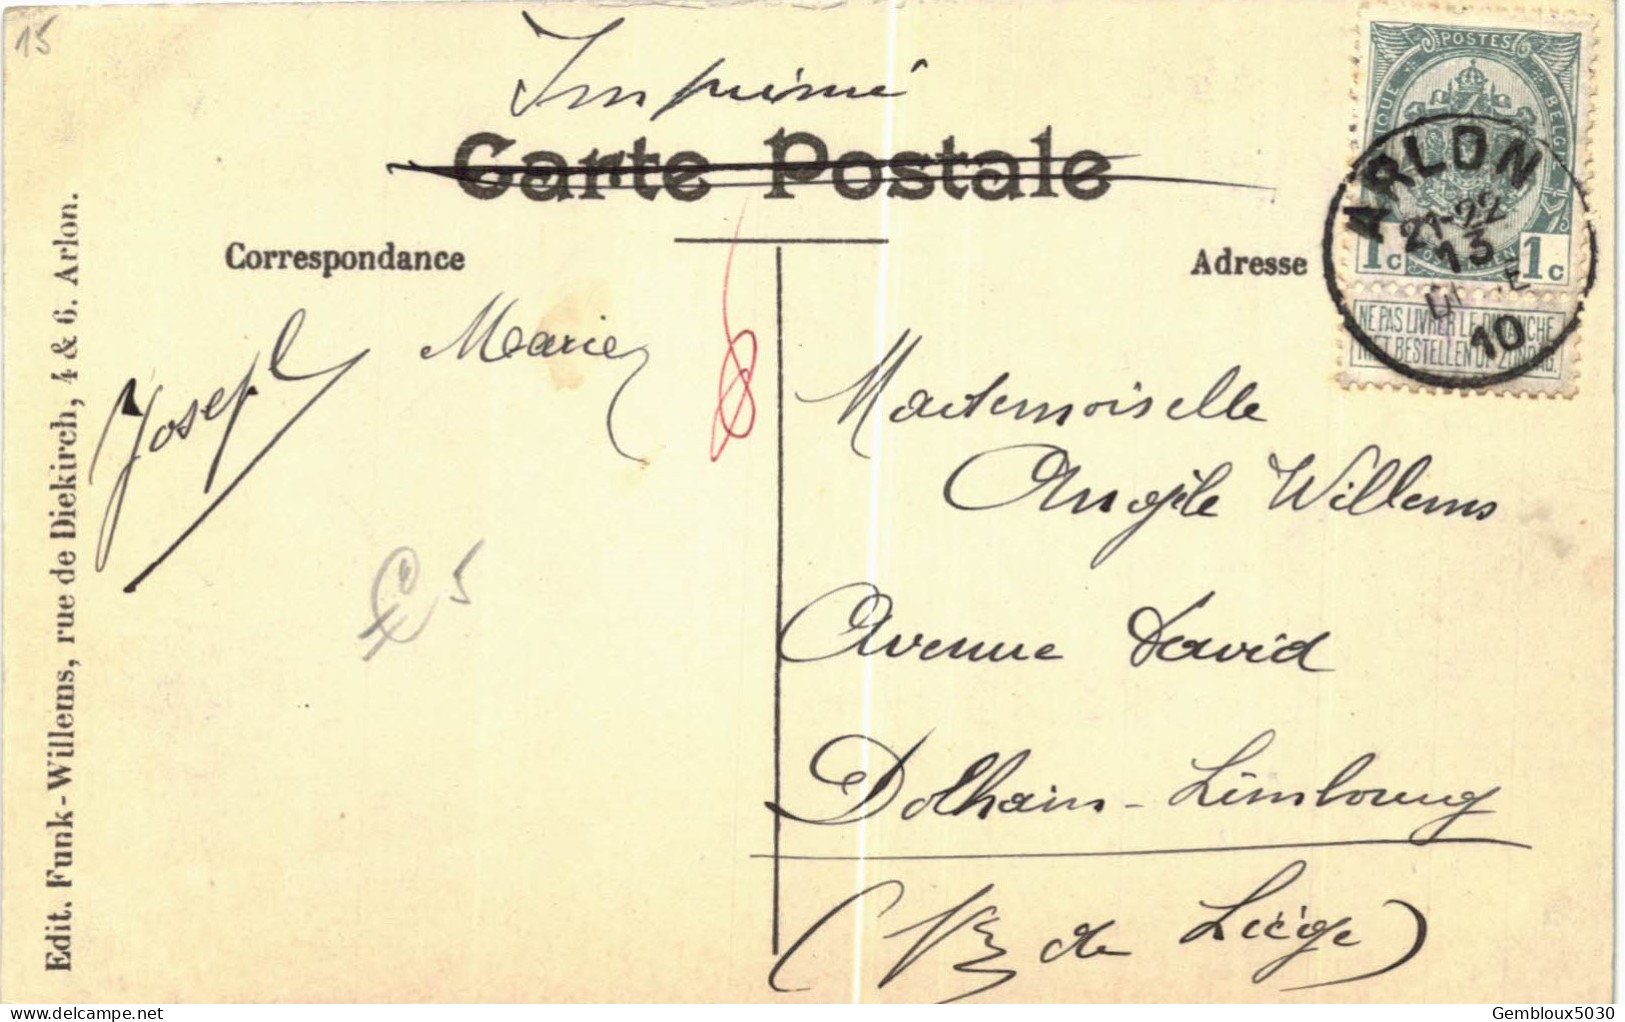 15
Imprimé
Carte Postale
POSTES
BELGIQUE
ARLON
21-22
13
10
1c 1c
NE PAS LIVRER LE DIMANCHE
NIET BESTELLEN OP ZONDAG.
Correspondance
Adresse
Joseph Marie
Mademoiselle
Angèle Willems
Avenue David
Dolhain-Limbourg
(Pce de Liège)
€ 5
Edit. Funk-Willems, rue de Diekirch, 4 & 6. Arlon.
Gembloux5030